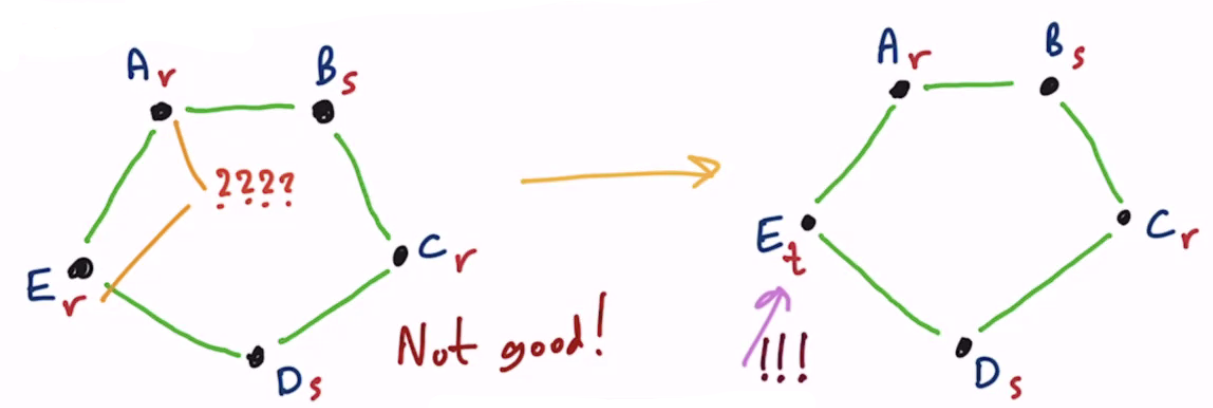 A r
B s
????
E r
C r
D s
Not good!
A r
B s
E t
C r
D s
!!!